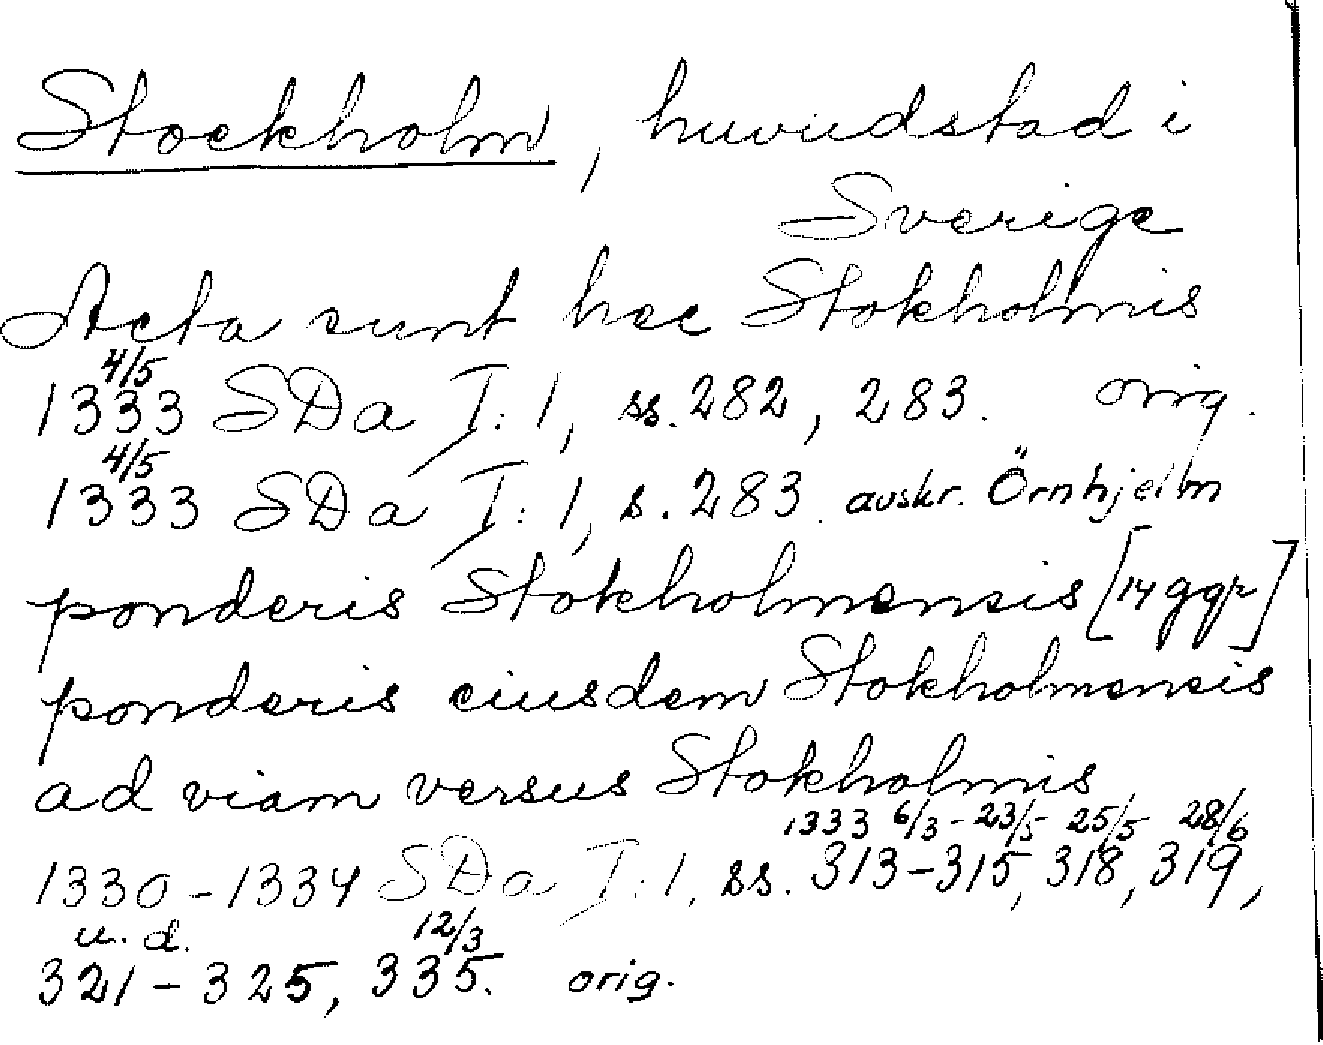 Stockholm, huvudstad i
Sverige
Acta sunt hec Stokholmis
4/5
1333 SDa I:1, ss. 282, 283. orig.
4/5
1333 SDa I:1, s. 283. avskr. Örnhjelm
ponderis Stokholmensis [14 ggr]
ponderis eiusdem Stokholmensis
ad viam versus Stokholmis
1333 6/3 - 23/5 25/5 28/6
1330-1334 SDa I:1, ss. 313-315, 318, 319,
u. d. 12/3
321-325, 335. orig.